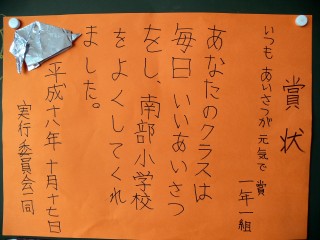 賞状
いつも あいさつが 元気で賞
一年一組
あなたのクラスは
毎日 いいあいさつ
をし、南部小学校
をよくしてくれ
ました。
平成十八年 十月十七日
実行委員会一同